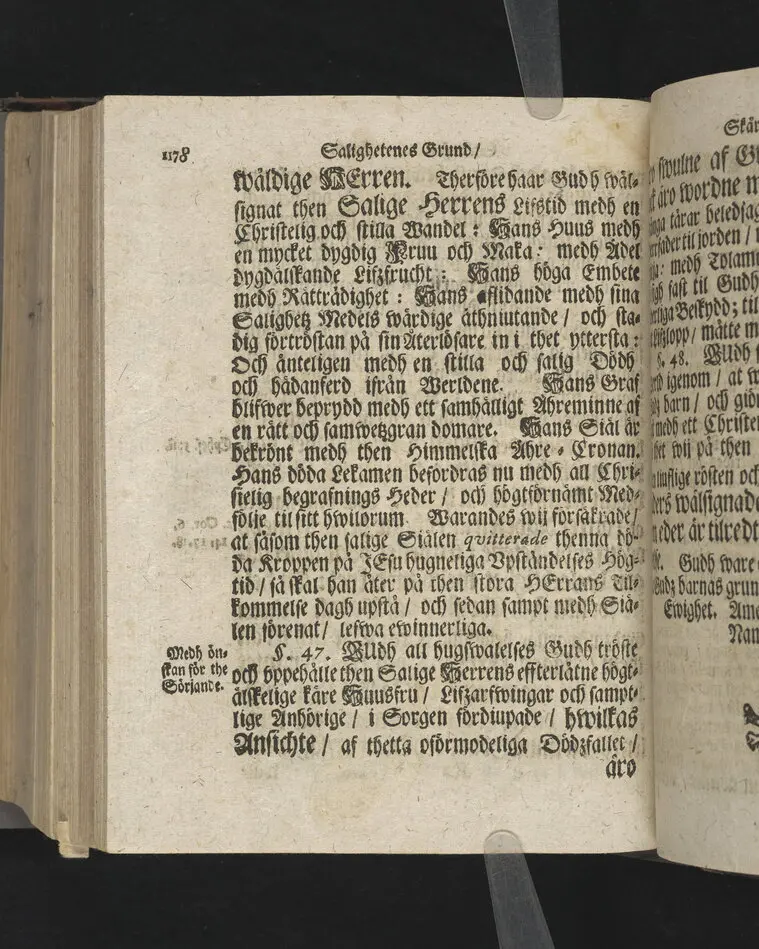 1178
Salighetenes Grund/
wäldige HErren. Therföre haar Gudh wäl-
signat then Salige Herrens Lifstid medh en
Christelig och stilla Wandel: Hans Huus medh
en mycket dygdig Fruu och Maka: medh Adel
dygdälskande Lifzfrucht: Hans höga Embete
medh Rättrådighet: Hans aflidande medh sina
Salighetz Medels wärdige åthniutande/ och sta-
dig förtröstan på sin Återlösare in i thet yttersta:
Och änteligen medh en stilla och salig Dödh
och hädanferd ifrån Werldene. Hans Graf
blifwer beprydd medh ett samhälligt Ähreminne af
en rätt och samwetzgran domare. Hans Siäl är
bekrönt medh then Himmelska Ähre-Cronan.
Hans döda Lekamen befordras nu medh all Chri-
stelig begrafnings Heder/ och högtförnämt Med-
följe til sitt hwilorum. Warandes wij försäkrade/
at såsom then salige Siälen qvitterade thenna dö-
da Kroppen på JEsu hugneliga Vpståndelses Hög-
tid/ så skal han åter på then stora HErrans Til-
kommelse dagh upstå/ och sedan sampt medh Siä-
len förenat/ lefwa ewinnerliga.
Medh ön-
skan för the
Sörjande.
§. 47. GUdh all hugswalelses Gudh tröste
och vppehälle then Salige Herrens effterlåtne högt-
älskelige käre Huusfru/ Lifzarfwingar och sampt-
lige Anhörige/ i Sorgen fördiupade/ hwilkas
Ansichte/ af thetta oförmodeliga Dödzfallet/
äro
Skär
swulne af
äro wordne
tårar
til jorden/
medh
fast til Gudh
Beskydd; til
måtte
§. 48. GUdh
igenom/ at
barn/ och
medh ett
wij på then
rösten och
wälsignade
är tilredt
Gudh ware
barnas
Ewighet.